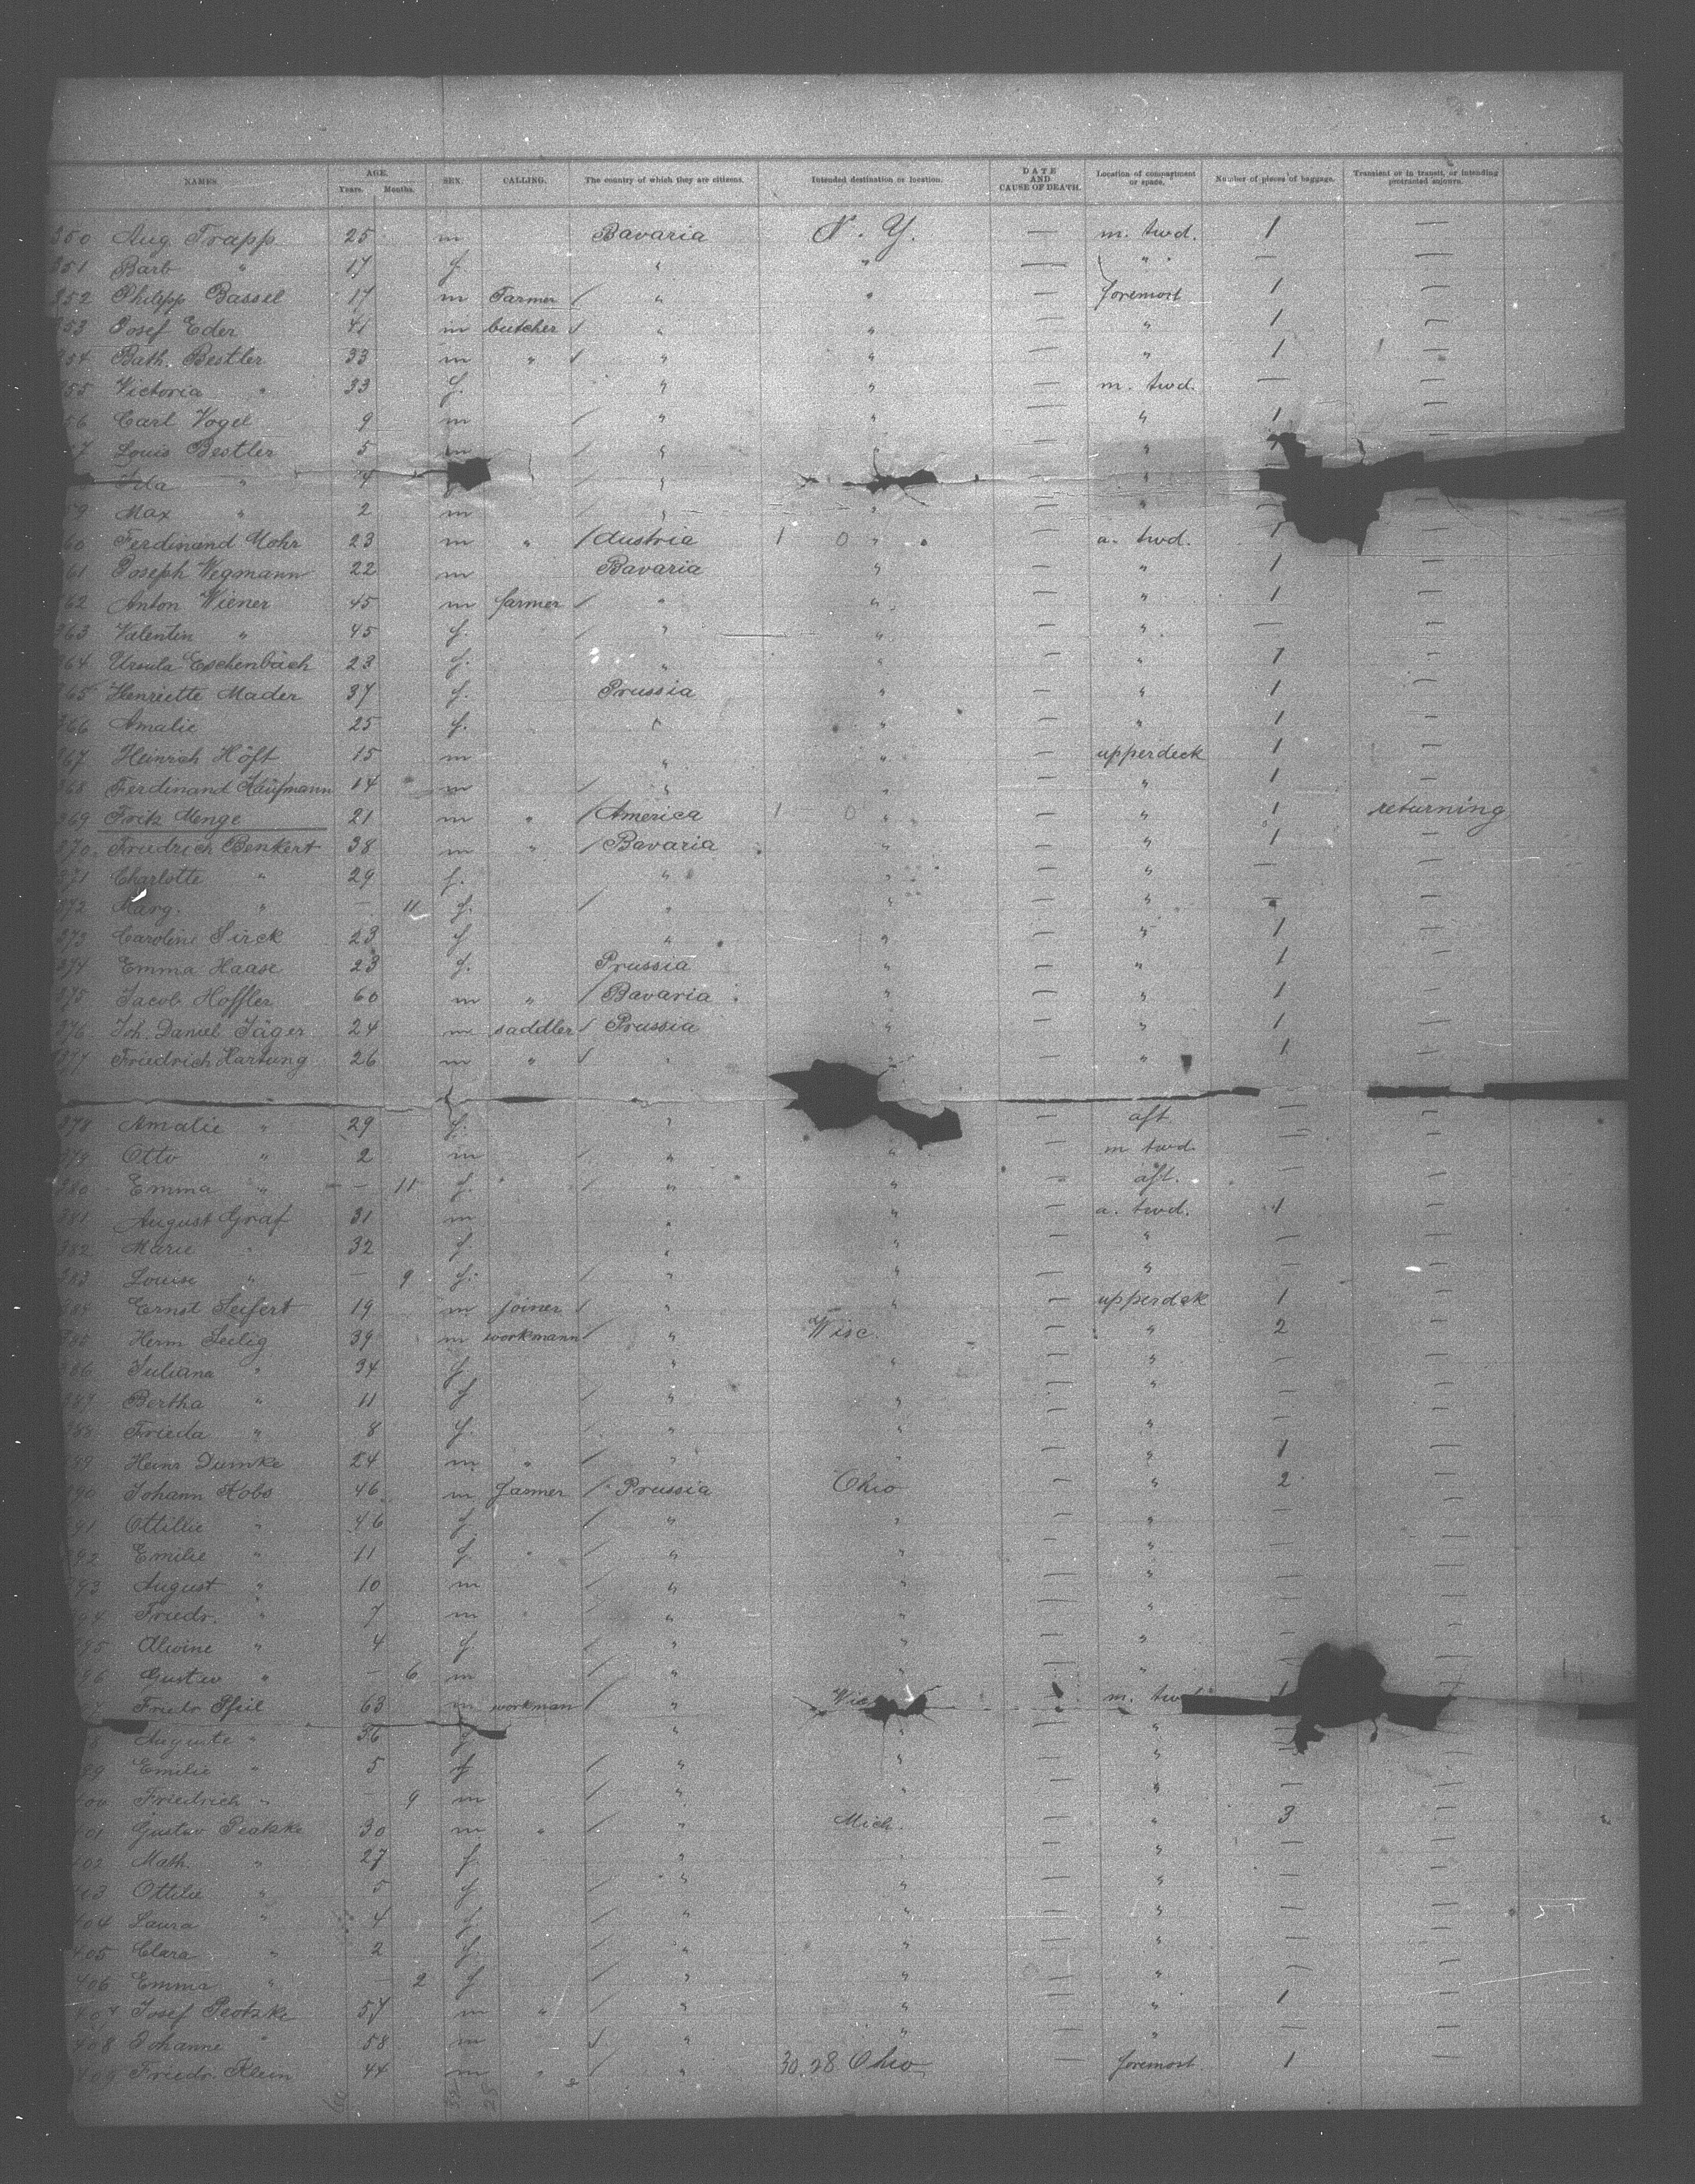 NAMES. AGE. Years. Months. SEX. CALLING. The country of which they are citizens. Intended destination or location. DATE AND CAUSE OF DEATH. Location of compartment or space. Number of pieces of baggage. Transient or in transit, or intending protracted sojourn.
350 Aug. Trapp 25 m Bavaria N. Y. — m. twd. 1 —
351 Barb " 17 f. " " — " — —
352 Philipp Bassel 17 m Farmer / " " — foremost 1 —
353 Josef Eder 41 m butcher / " " — " 1 —
354 Bath. Bestler 33 m " / " " — " 1 —
355 Victoria " 33 f. " " — m. twd. — —
56 Carl Vogel 9 m / " " — " 1 —
7 Louis Bestler 5 m / " " — " —
" / " — "
9 Max " 2 m / " " — " —
60 Ferdinand Mohr 23 m " / Austria 1 0 " — a. twd. 1 —
61 Joseph Wegmann 22 m Bavaria " — " 1 —
62 Anton Wiener 45 m farmer / " " — " 1 —
363 Valentin " 45 f. / " " — " — —
364 Ursula Eschenbach 23 f. " " — " 1 —
365 Henriette Mader 37 f. Prussia " — " 1 —
366 Amalie 25 f. " " — " 1 —
367 Heinrich Höft 15 m " " — upperdeck 1 —
368 Ferdinand Kaufmann 14 m / " " — " 1 —
369 Fritz Menge 21 m " / America 1 0 " — " 1 returning
370 Friedrich Benkert 38 m " / Bavaria " — " 1 —
371 Charlotte " 29 f. " " — " — —
372 Marg. " — 11 f. / " " — " — —
373 Caroline Sirck 23 f " " — " 1 —
374 Emma Haase 23 f. Prussia " — " 1 —
375 Jacob Hoffler 60 m " / Bavaria " — " 1 —
376 Joh. Daniel Jäger 24 m saddler / Prussia " — " 1 —
377 Friedrich Hartung 26 m " / " " — " 1 —
378 Amalie " 29 f. " — aft — —
379 Otto " 2 m / " " — m twd. — —
380 Emma " — 11 f. / " " — aft. — —
381 August Graf 31 m " " — a. twd. 1 —
382 Marie " 32 f. " " — " — —
383 Louise " — 9 f. / " " — " — —
384 Ernst Seifert 19 m joiner / " " — upperdek 1 —
385 Herm Seilig 39 m workmann / " Wisc. — " 2 —
386 Juliana " 34 f " " — " — —
387 Bertha " 11 f / " " — " — —
388 Frieda " 8 f. / " " — " — —
389 Heinr Dumke 24 m " / " " — " 1 —
390 Johann Kobs 46 m farmer / Prussia Ohio — " 2 —
391 Ottilie " 46 f / " " — " — —
392 Emilie " 11 f / " " — " — —
393 August " 10 m / " " — " — —
394 Friedr. " 7 m / " " — " — —
395 Alwine " 4 f / " " — " — —
396 Gustav " — 6 m / " " — " —
7 Friedr Pfeil 63 m workman / " Wisc — m. twd 1
8 Auguste " 36 f " " — " — —
99 Emilie " 5 f / " " — " — —
400 Friedrich " — 9 m / " " — " — —
401 Gustav Peatzke 30 m " / " Mich. — " 3 —
402 Math. " 27 f. " — " — —
403 Ottilie " 5 f / " " — " — —
404 Laura " 4 f / " " — " — —
405 Clara " 2 f. / " " — " — —
406 Emma " — 2 f / " " — " — —
407 Josef Peotzke 57 m " / " " — " 1 —
408 Johanne " 58 m / " " — " — —
409 Friedr. Klein 44 m " / " 30.28 Ohio — foremost 1 —